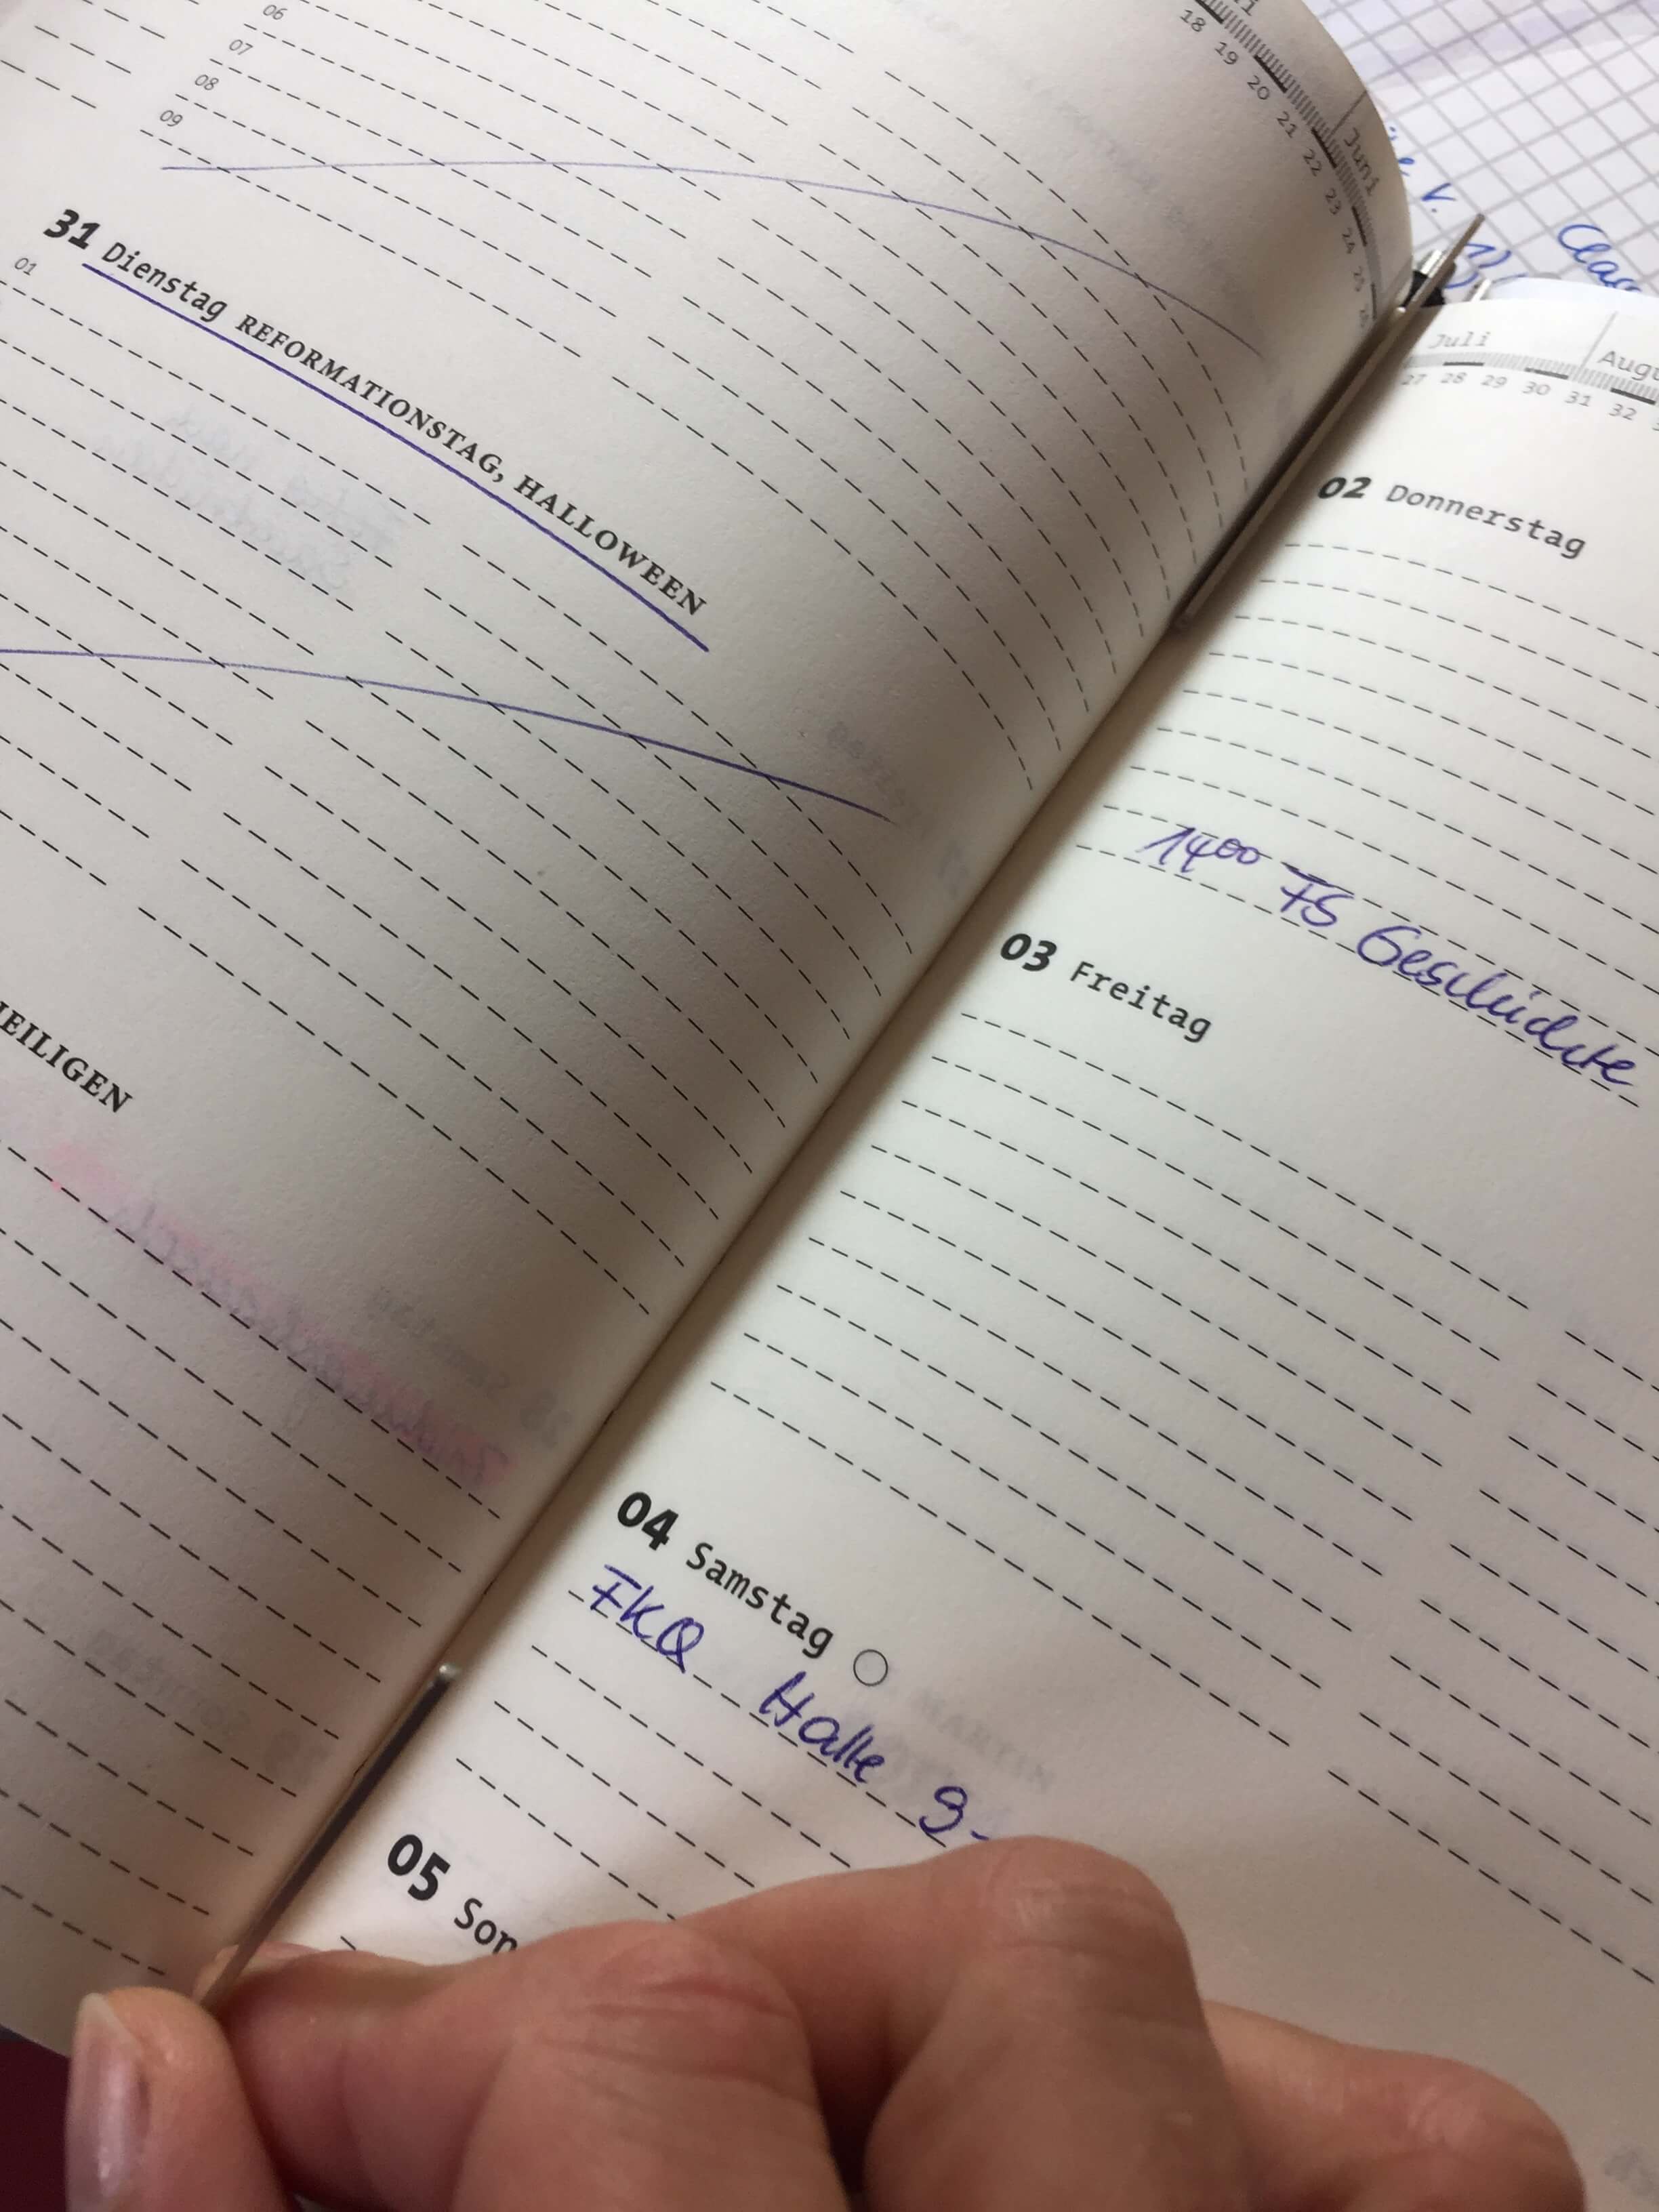 06
07
08
09
18 19 20 21 22 23 24 25
Juni
31 Dienstag REFORMATIONSTAG, HALLOWEEN
01
EILIGEN
Juli Augu
27 28 29 30 31 32
02 Donnerstag
14⁰⁰ FS Geschichte
03 Freitag
04 Samstag
FKQ Halle 9-
05 Son